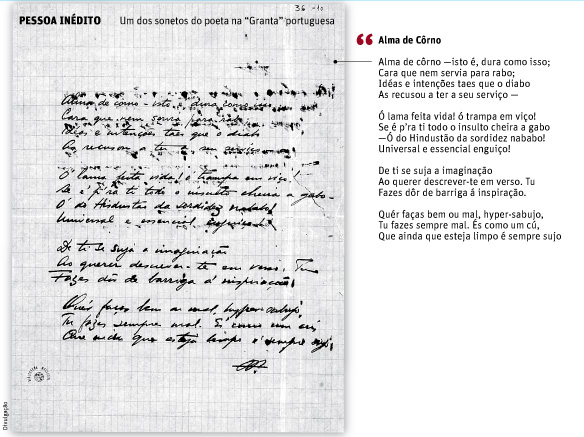 36-10
PESSOA INÉDITO Um dos sonetos do poeta na “Granta” portuguesa
Alma de côrno – isto é, dura como isso;
Cara que nem servia para rabo;
Idéas e intenções taes que o diabo
As recusou a ter a seu serviço –
Ó lama feita vida! ó trampa em viço!
Se é p'ra ti todo o insulto cheira a gabo
– Ó do Hindustão da sordidez nababo!
Universal e essencial enguiço!
De ti se suja a imaginação
Ao querer descrever-te em verso. Tu
Fazes dôr de barriga á inspiração.
Quér faças bem ou mal, hyper-sabujo,
Tu fazes sempre mal. És como um cú,
Que ainda que esteja limpo é sempre sujo
“ Alma de Côrno
Alma de côrno —isto é, dura como isso;
Cara que nem servia para rabo;
Idéas e intenções taes que o diabo
As recusou a ter a seu serviço —
Ó lama feita vida! ó trampa em viço!
Se é p'ra ti todo o insulto cheira a gabo
—Ó do Hindustão da sordidez nababo!
Universal e essencial enguiço!
De ti se suja a imaginação
Ao querer descrever-te em verso. Tu
Fazes dôr de barriga á inspiração.
Quér faças bem ou mal, hyper-sabujo,
Tu fazes sempre mal. És como um cú,
Que ainda que esteja limpo é sempre sujo
Divulgação